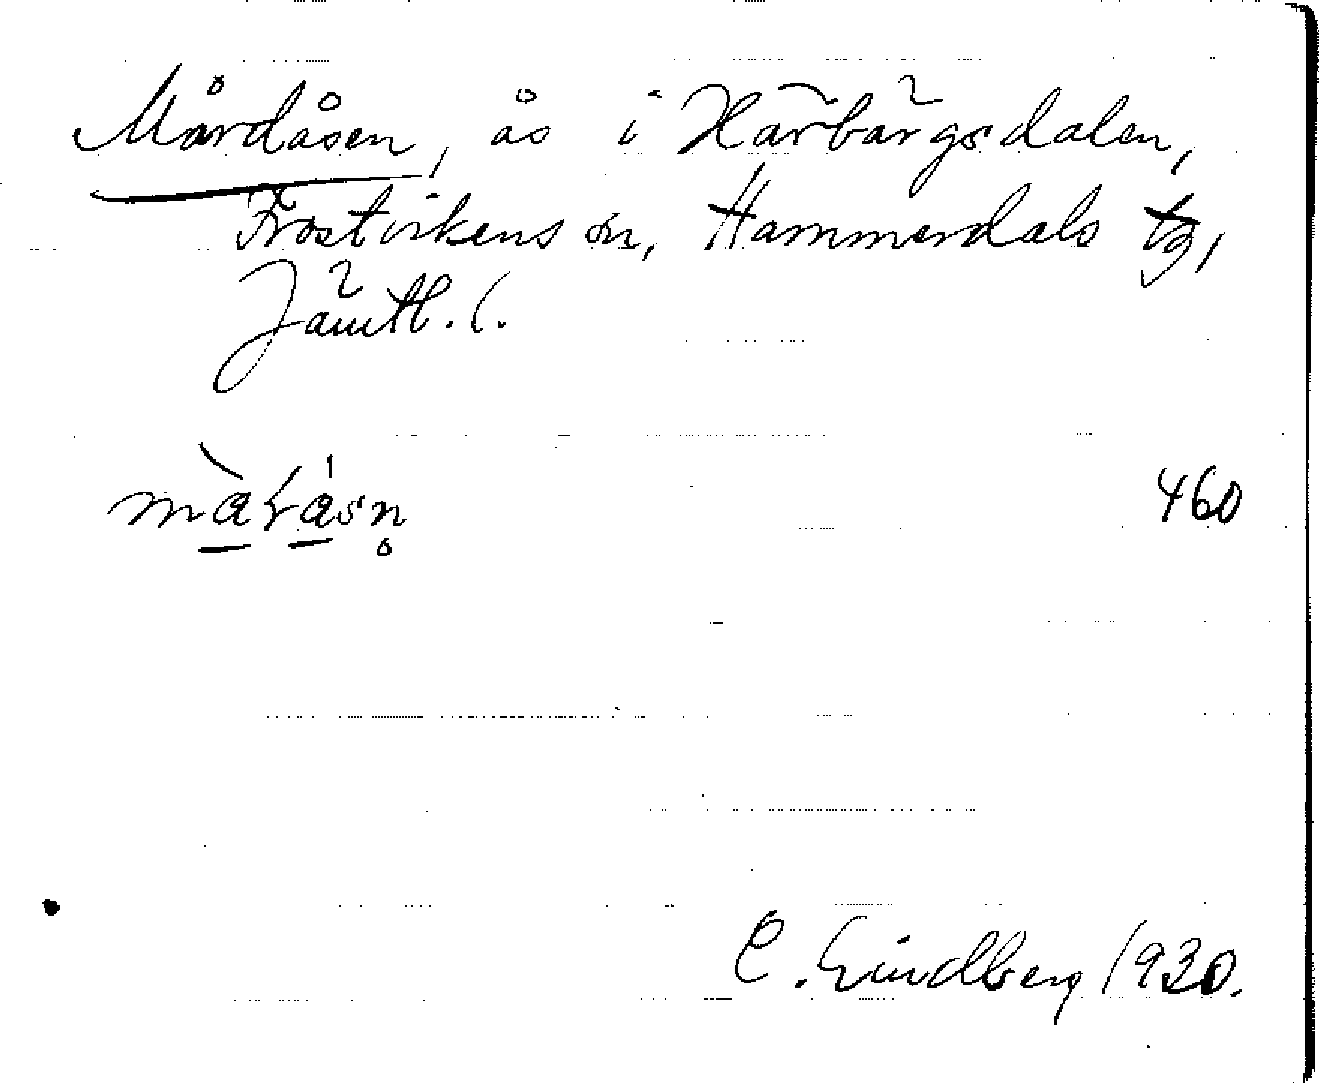 Mårdåsen, ås i Härbärgsdalen,
Frostvikens sn, Hammerdals tg,
Jämtl. l.
460
C. Lindberg 1930.